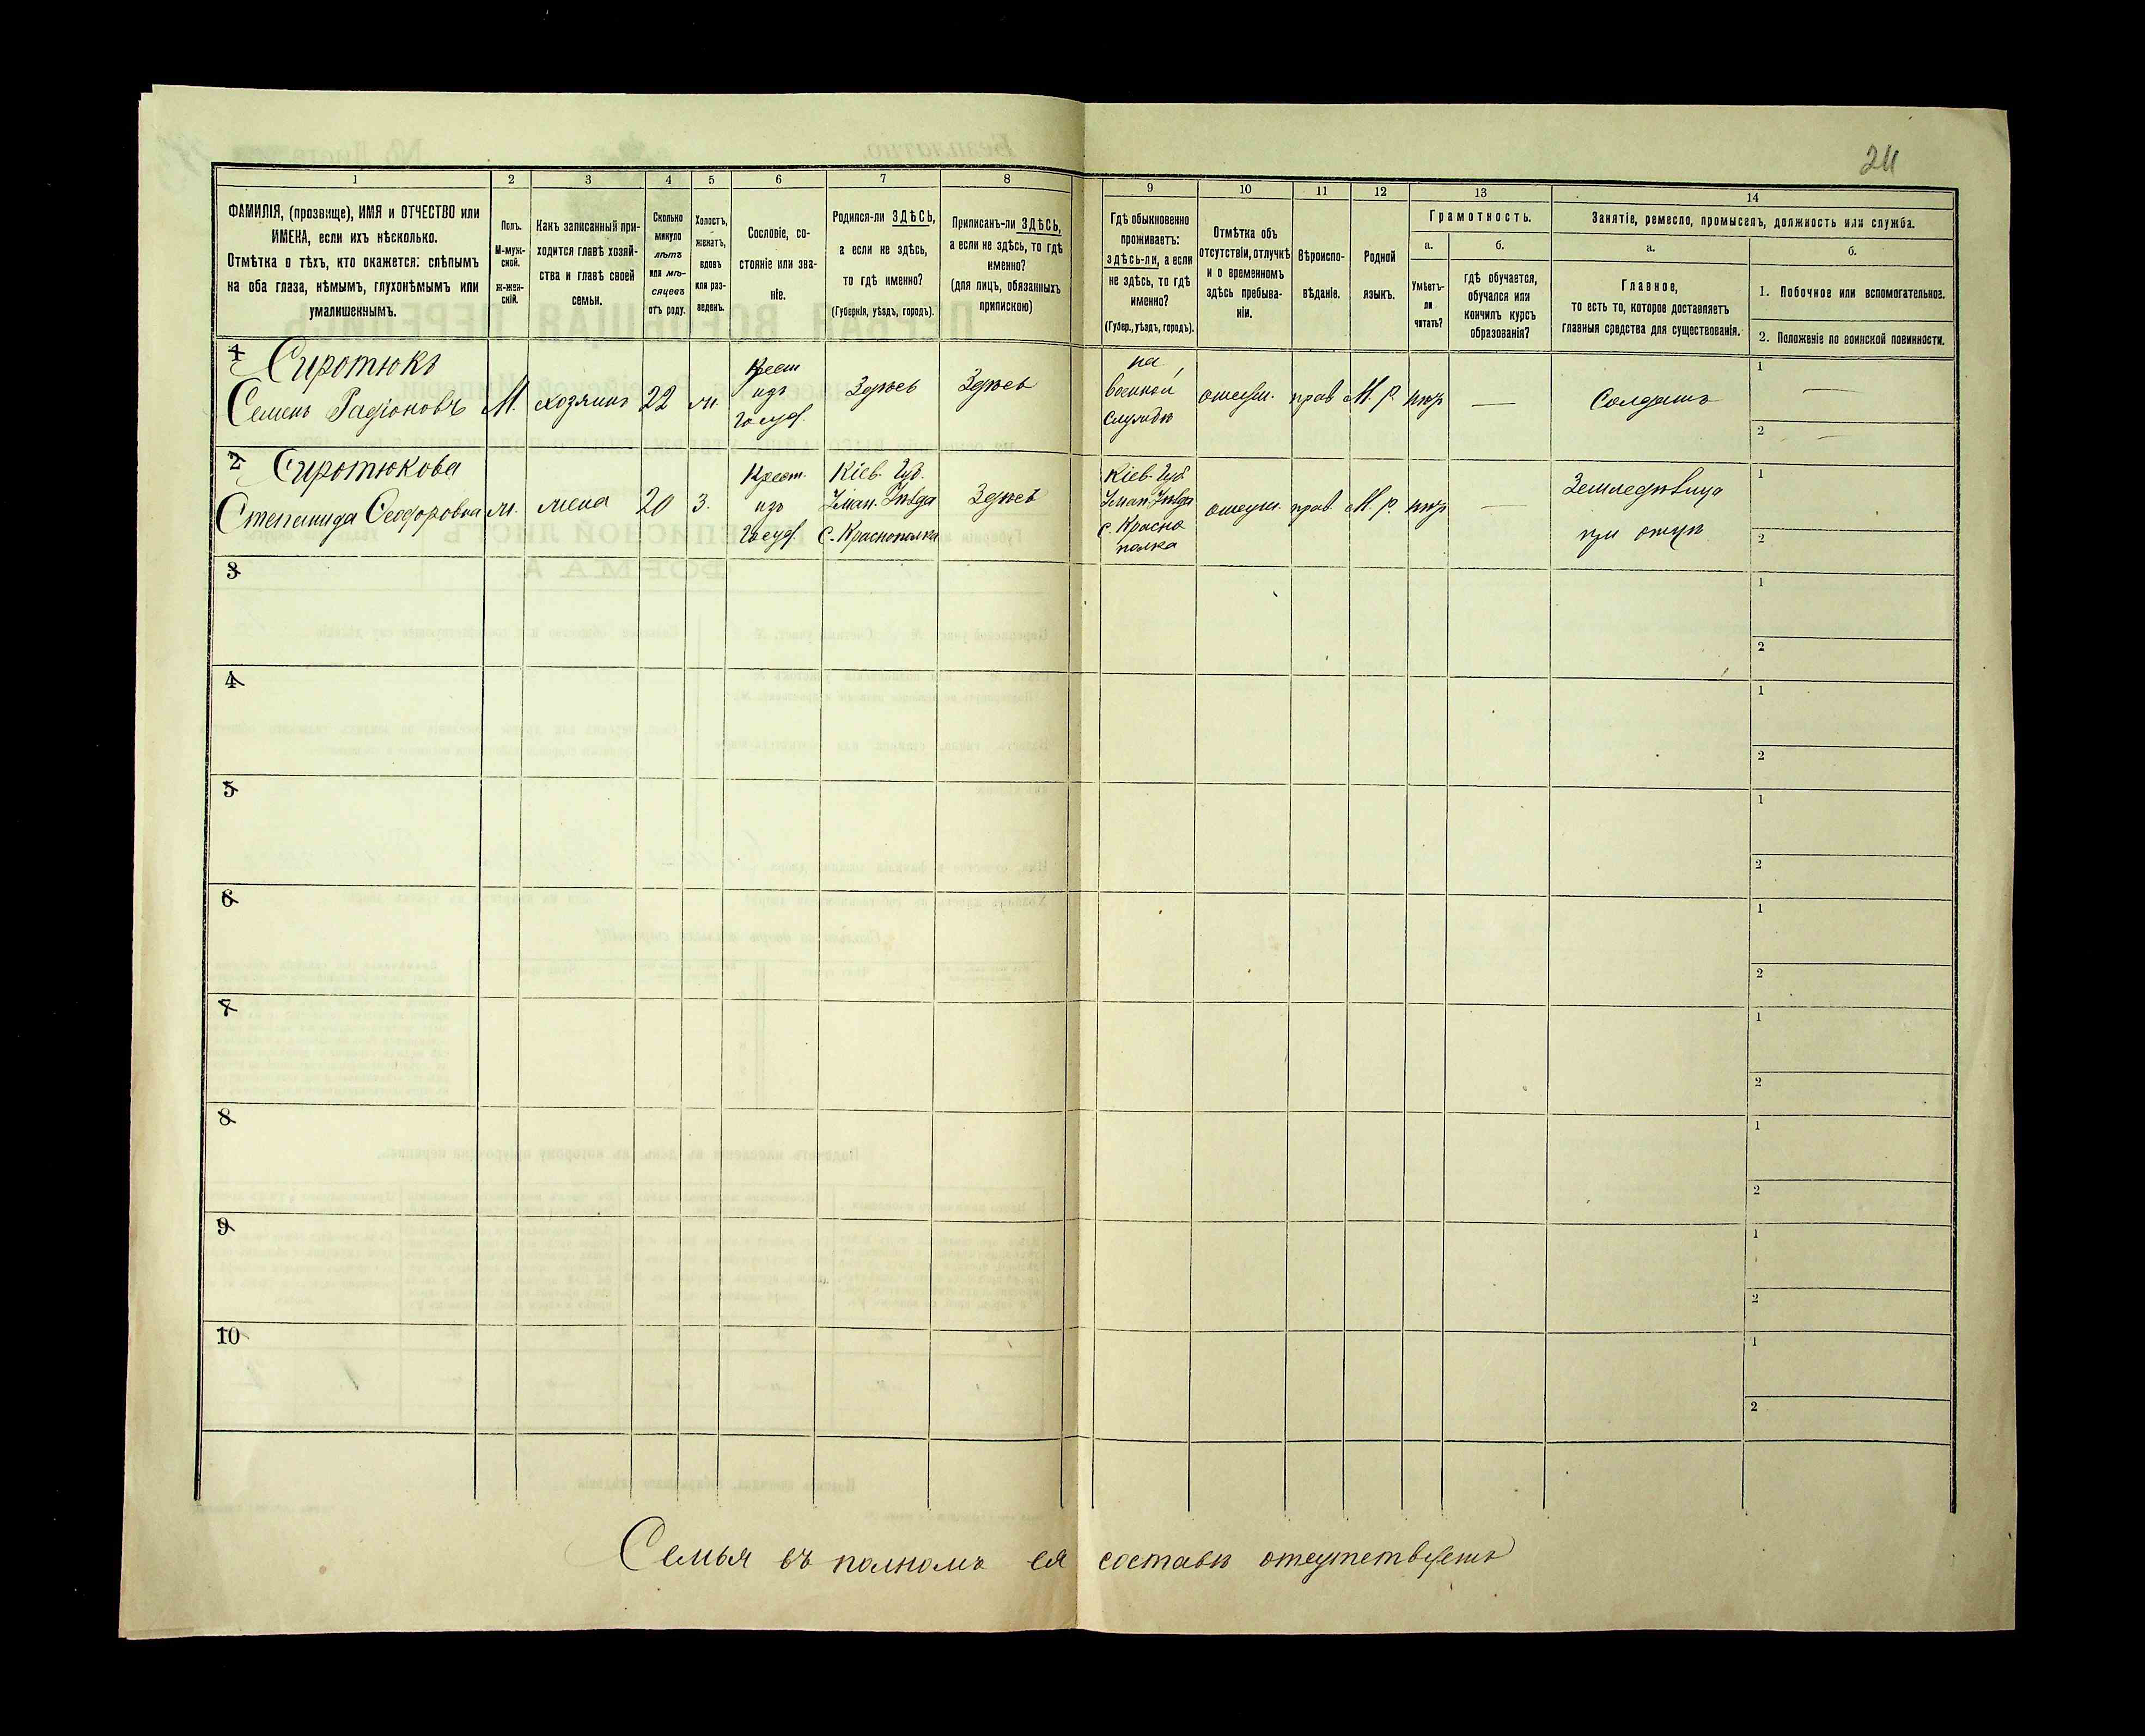 24
1 2 3 4 5 6 7 8 9 10 11 12 13 14
ФАМИЛІЯ, (прозвище), ИМЯ и ОТЧЕСТВО или
ИМЕНА, если ихъ нѣсколько.
Отмѣтка о тѣхъ, кто окажется: слѣпымъ
на оба глаза, нѣмымъ, глухонѣмымъ или
умалишеннымъ.
Полъ.
М-муж-
ской.
ж-жен-
скій.
Какъ записанный при-
ходится главѣ хозяй-
ства и главѣ своей
семьи.
Сколько
минуло
лѣтъ
или мѣ-
сяцевъ
отъ роду.
Холостъ,
женатъ,
вдовъ
или раз-
веденъ.
Сословіе, со-
стояніе или зва-
ніе.
Родился-ли ЗДѢСЬ,
а если не здѣсь,
то гдѣ именно?
(Губернія, уѣздъ, городъ).
Приписанъ-ли ЗДѢСЬ,
а если не здѣсь, то гдѣ
именно?
(для лицъ, обязанныхъ
припискою)
Гдѣ обыкновенно
проживаетъ:
здѣсь-ли, а если
не здѣсь, то гдѣ
именно?
(Губер., уѣздъ, городъ).
Отмѣтка объ
отсутствіи, отлучкѣ
и о временномъ
здѣсь пребыва-
ніи.
Вѣроиспо-
вѣданіе.
Родной
языкъ.
Грамотность.
а.
Умѣетъ-
ли
читать?
б.
гдѣ обучается,
обучался или
кончилъ курсъ
образованія?
Занятіе, ремесло, промыселъ, должность или служба.
а.
Главное,
то есть то, которое доставляетъ
главныя средства для существованія.
б.
1. Побочное или вспомогательное.
2. Положеніе по воинской повинности.
1 Сиротюкъ
Семенъ Радіоновъ
М.
хозяинъ
22
ж.
Крест
изъ
Госуд.
Здѣсь
Здѣсь
на
военной
службѣ
отсут.
прав
М. Р.
нѣт
—
Солдатъ
1 —
2 —
2 Сиротюкова
Степанида Феодоровна
ж.
жена
20
З.
Крест.
изъ
Госуд.
Кіев. Губ.
Уман. Уѣзда
с. Краснополка
Здѣсь
Кіев. Губ
Уман. Уѣзда
с. Красно
полка
отсут.
прав.
М. Р.
нѣт
—
Земледѣлица
при отцѣ
1
2
3
1
2
4
1
2
5
1
2
6
1
2
7
1
2
8
1
2
9
1
2
10
1
2
Семья въ полномъ ея составѣ отсутствуетъ